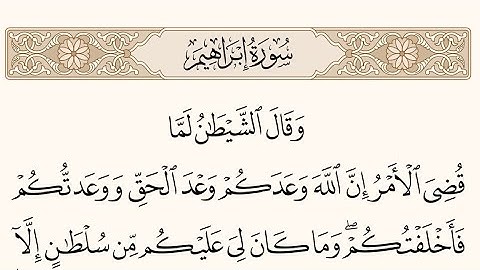 سُورَةُ إِبْرَاهِيم
وَقَالَ ٱلشَّيْطَٰنُ لَمَّا
قُضِىَ ٱلْأَمْرُ إِنَّ ٱللَّهَ وَعَدَكُمْ وَعْدَ ٱلْحَقِّ وَوَعَدتُّكُمْ
فَأَخْلَفْتُكُمْ ۖ وَمَا كَانَ لِىَ عَلَيْكُم مِّن سُلْطَٰنٍ إِلَّآ